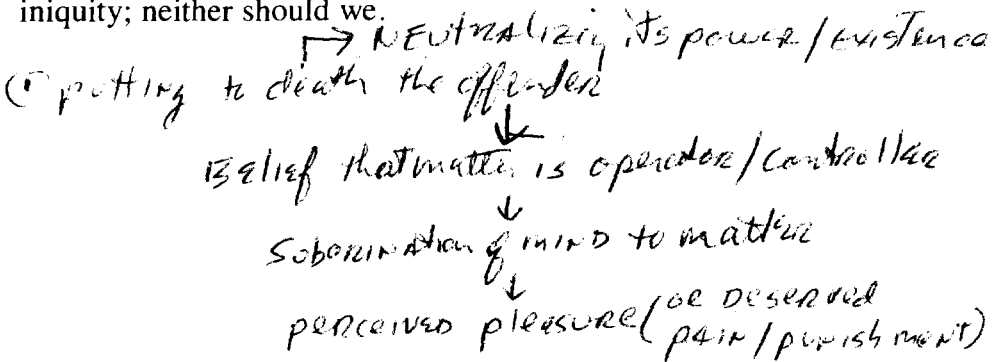 iniquity; neither should we.
↱ NEUTRALizing its power/existence
(1 putting to death the offender
↓
Belief that matter is operator/controller
↓
Suborination of MIND to matter
↓
perceived pleasure (or deserved
pain/punishment)